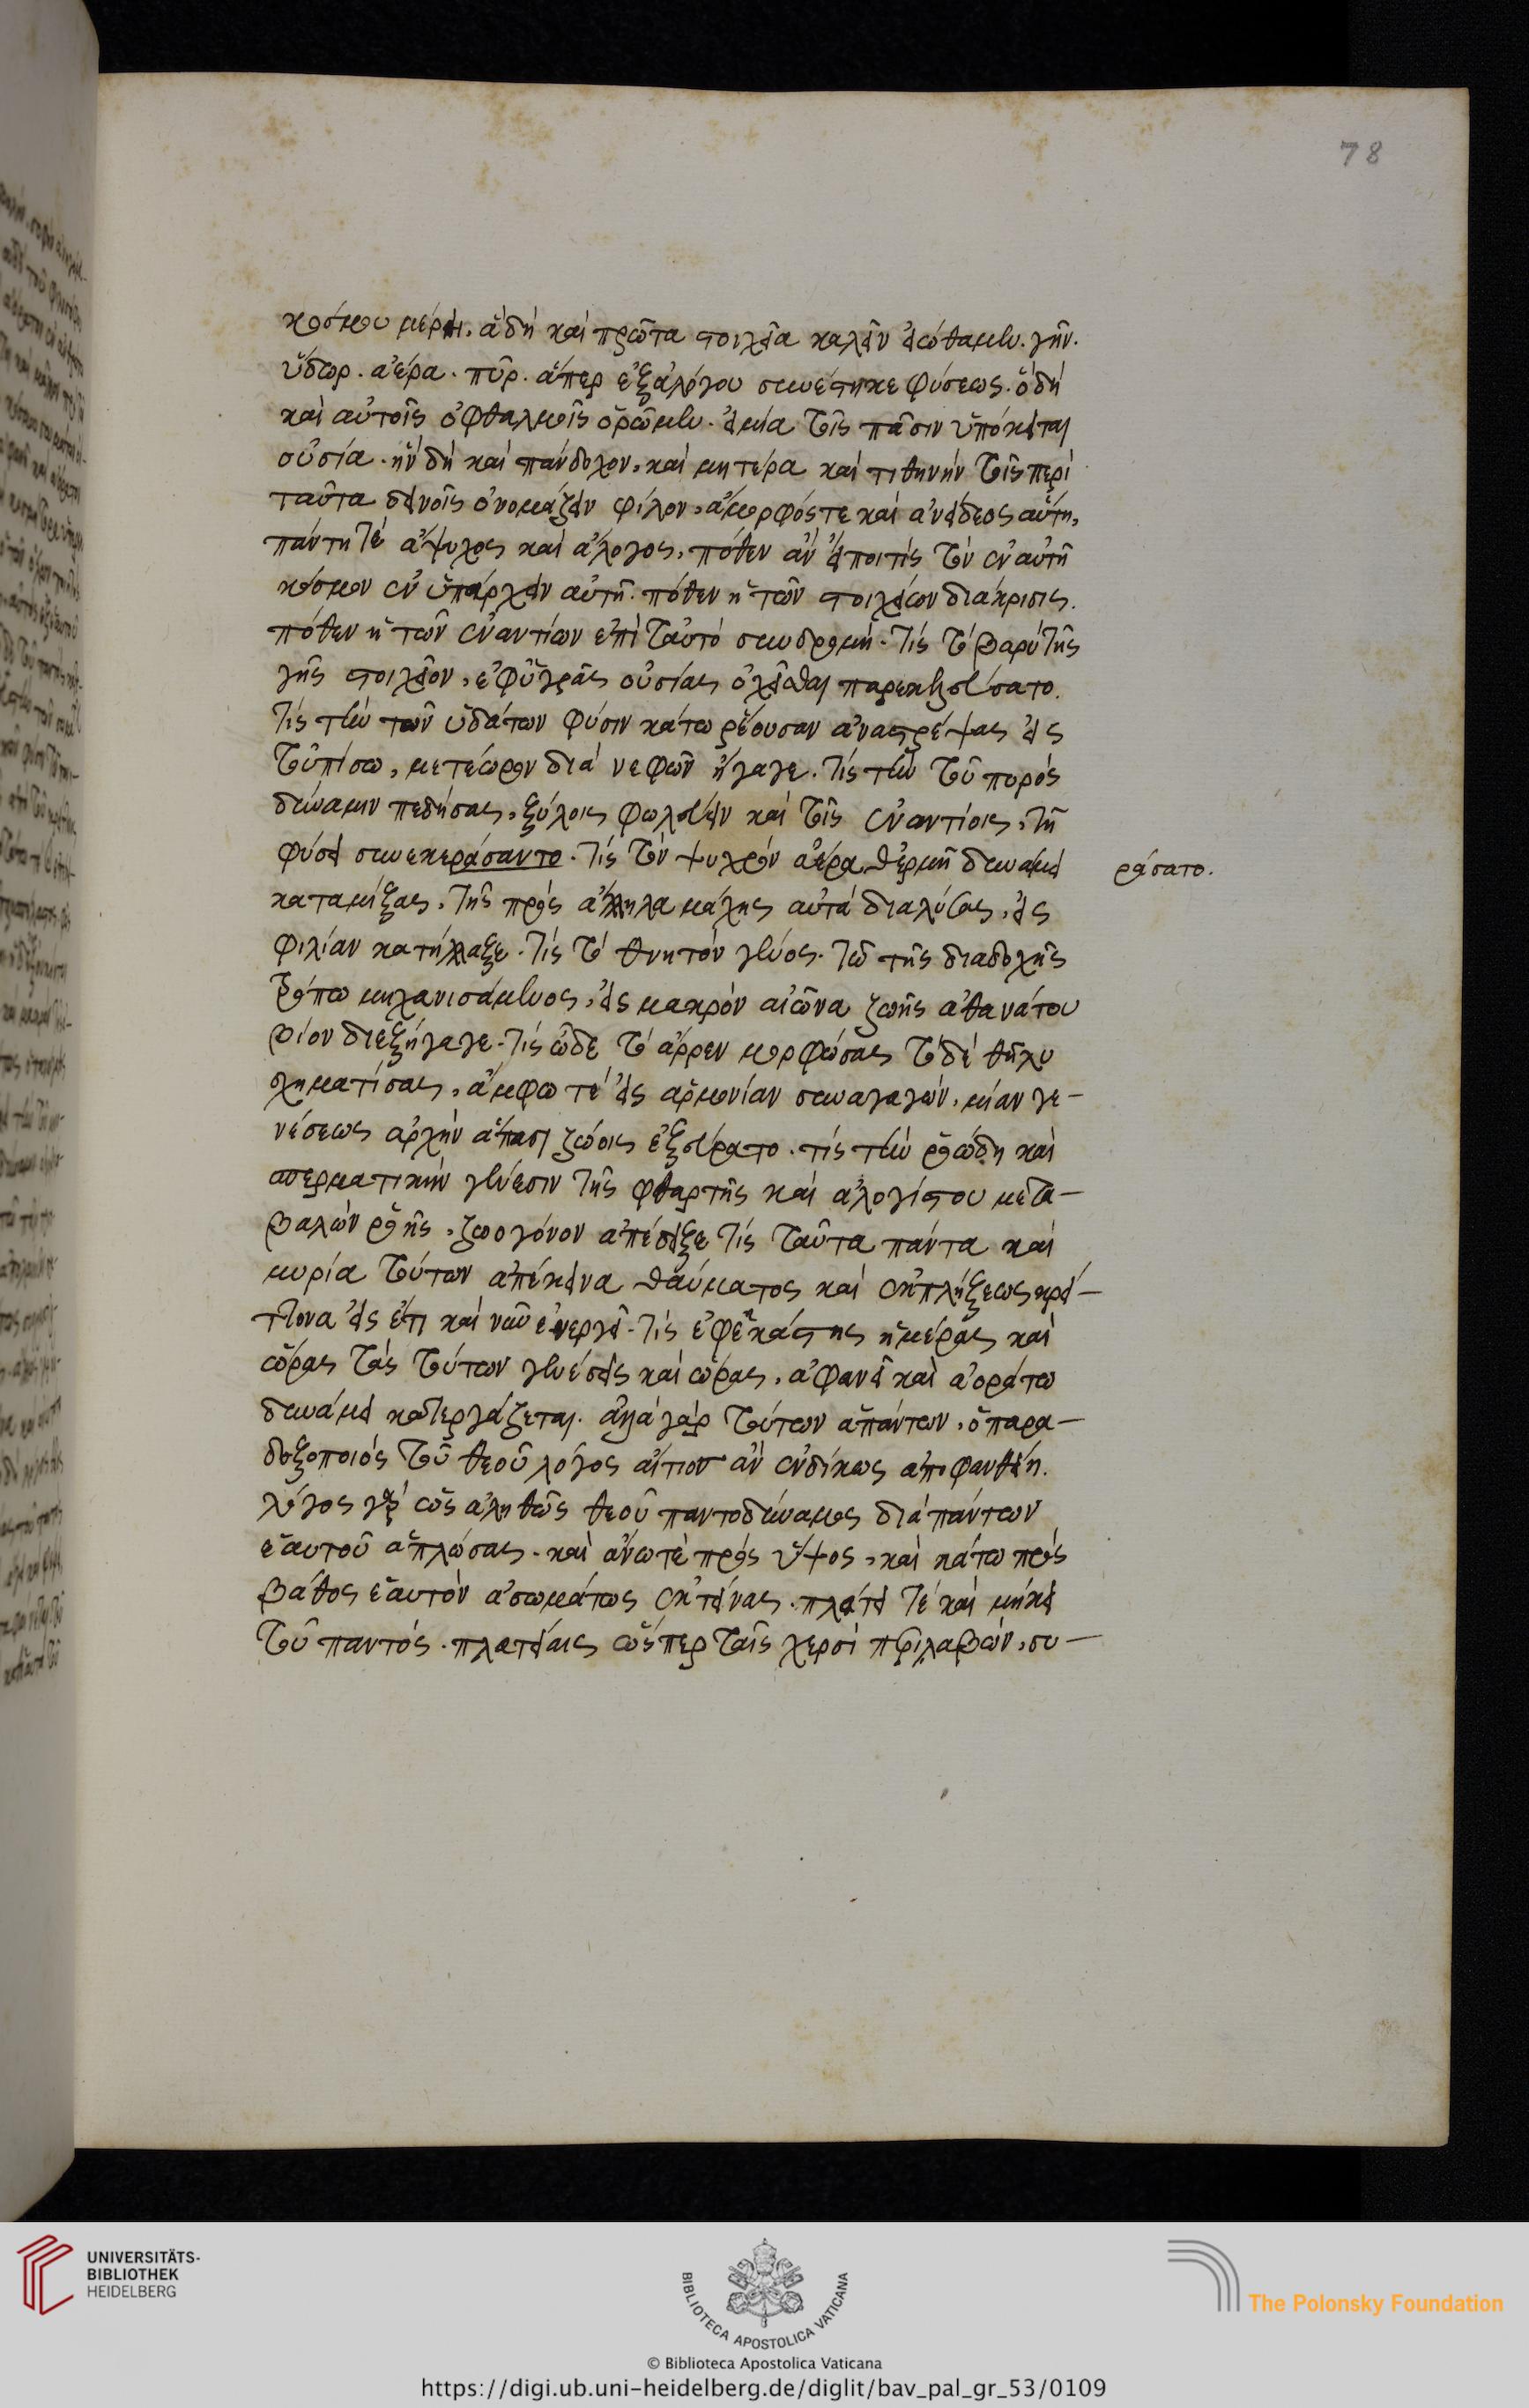 78
κόσμου μέρη. ἃ δὴ καὶ πρῶτα στοιχεῖα καλεῖν εἰώθαμεν. γῆν.
ὕδωρ. ἀέρα. πῦρ. ἅπερ ἐξ ἀλόγου συνέστηκε φύσεως. ὃ δὴ
καὶ αὐτοῖς ὀφθαλμοῖς ὁρῶμεν. εἰ μία τοῖς πᾶσιν ὑπόκειται
οὐσία. ἣν δὴ καὶ πάνδοχον, καὶ μητέρα καὶ τιθηνὴν τοῖς περὶ
ταῦτα δεινοῖς ὀνομάζειν φίλον, ἄμορφός τε καὶ ἀνείδεος αὕτη,
πάντη τὲ ἄψυχος καὶ ἄλογος, πόθεν ἂν εἴποι τίς τὸν ἐν αὐτῆ
κόσμον ἐνυπάρχειν αὐτῆ. πόθεν ἡ τῶν στοιχείων διάκρισις.
πόθεν ἡ τῶν ἐναντίων ἐπὶ ταυτὸ συνδρομή. τίς τὸ βαρὺ τῆς
γῆς στοιχεῖον, ἐφ' ὑγρᾶς οὐσίας ὀχεῖσθαι παρεκελεύσατο.
τίς τὴν τῶν ὑδάτων φύσιν κάτω ῥέουσαν ἀναστρέψας εἰς
τοὐπίσω, μετέωρον διὰ νεφῶν ἤγαγε. τίς τὴν τοῦ πυρὸς
δύναμιν πεδήσας, ξύλοις φωλεύειν καὶ τοῖς ἐναντίοις, τῆ
φύσει συνεκεράσαντο. τίς τὸν ψυχρὸν ἀέρα θερμῆ δυνάμει
ράσατο.
καταμίξας, τῆς πρὸς ἄλληλα μάχης αὐτὰ διαλύσας, εἰς
φιλίαν κατήλλαξε. τίς τὸ θνητὸν γένος. τῶ τῆς διαδοχῆς
τρόπω μηχανισάμενος, εἰς μακρὸν αἰῶνα ζωῆς ἀθανάτου
βίον διεξήγαγε. τίς ὧδε τὸ ἄρρεν μορφώσας τὸ δὲ θῆλυ
σχηματίσας, ἄμφω τὲ εἰς ἁρμονίαν συναγαγών, μίαν γε-
νέσεως ἀρχὴν ἅπασι ζώοις ἐξεύρατο. τίς τὴν ῥοώδη καὶ
σπερματικὴν γένεσιν τῆς φθαρτῆς καὶ ἀλογίστου μετα-
βαλὼν ῥοῆς, ζωογόνον ἀπέδειξε τίς ταῦτα πάντα καὶ
μυρία τούτων ἀπέκεινα θαύματος καὶ ἐκπλήξεως κρεί-
ττονα εἰς ἔτι καὶ νῦν ἐνεργεῖ. τίς ἐφ' ἑκάστης ἡμέρας καὶ
ὥρας τὰς τούτων γενέσεις καὶ ὥρας, ἀφανεῖ καὶ ἀοράτω
δυνάμει κατεργάζεται. ἀλλὰ γὰρ τούτων ἁπάντων, ὁ παρα-
δοξοποιὸς τοῦ θεοῦ λόγος αἴτιον ἂν ἐνδίκως ἀποφανθείη.
λόγος γὰρ ὡς ἀληθῶς θεοῦ παντοδύναμος διὰ πάντων
ἑαυτοῦ ἁπλώσας. καὶ ἄνω τὲ πρὸς ὕψος, καὶ κάτω πρὸς
βάθος ἑαυτὸν ἀσωμάτως ἐκτείνας. πλάτει τὲ καὶ μήκει
τοῦ παντός. πλατείαις ὥσπερ ταῖς χερσὶ περιλαβών, συ-
UNIVERSITÄTS-
BIBLIOTHEK
HEIDELBERG
BIBLIOTECA APOSTOLICA VATICANA
© Biblioteca Apostolica Vaticana
The Polonsky Foundation
https://digi.ub.uni-heidelberg.de/diglit/bav_pal_gr_53/0109